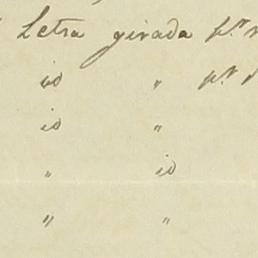 Letra girada p.r
id " p.r
id "
" id
" "